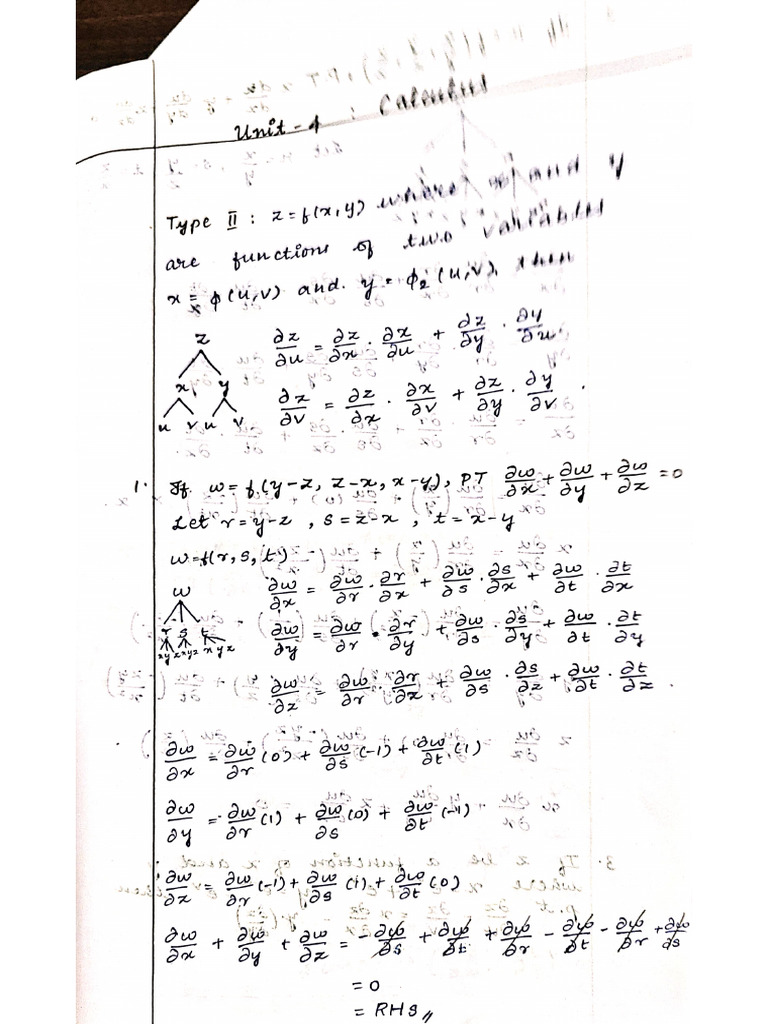 Unit - 4 : Calculus
Type II : z = f(x, y) where x and y
are functions of two variables
x = φ(u, v) and y = φ₂(u, v), then
z
x y
u v u v
∂z/∂u = ∂z/∂x · ∂x/∂u + ∂z/∂y · ∂y/∂u
∂z/∂v = ∂z/∂x · ∂x/∂v + ∂z/∂y · ∂y/∂v .
1. If w = f(y-z, z-x, x-y), PT ∂w/∂x + ∂w/∂y + ∂w/∂z = 0
Let r = y-z , s = z-x , t = x-y
w = f(r, s, t)
w
r s t
x y z x y z x y z
∂w/∂x = ∂w/∂r · ∂r/∂x + ∂w/∂s · ∂s/∂x + ∂w/∂t · ∂t/∂x
∂w/∂y = ∂w/∂r · ∂r/∂y + ∂w/∂s · ∂s/∂y + ∂w/∂t · ∂t/∂y
∂w/∂z = ∂w/∂r · ∂r/∂x + ∂w/∂s · ∂s/∂z + ∂w/∂t · ∂t/∂z .
∂w/∂x = ∂w/∂r (0) + ∂w/∂s (-1) + ∂w/∂t (1)
∂w/∂y = ∂w/∂r (1) + ∂w/∂s (0) + ∂w/∂t (-1)
∂w/∂z = ∂w/∂r (-1) + ∂w/∂s (1) + ∂w/∂t (0)
∂w/∂x + ∂w/∂y + ∂w/∂z = -∂w/∂s + ∂w/∂t + ∂w/∂r - ∂w/∂t - ∂w/∂r + ∂w/∂s
= 0
= RHS //